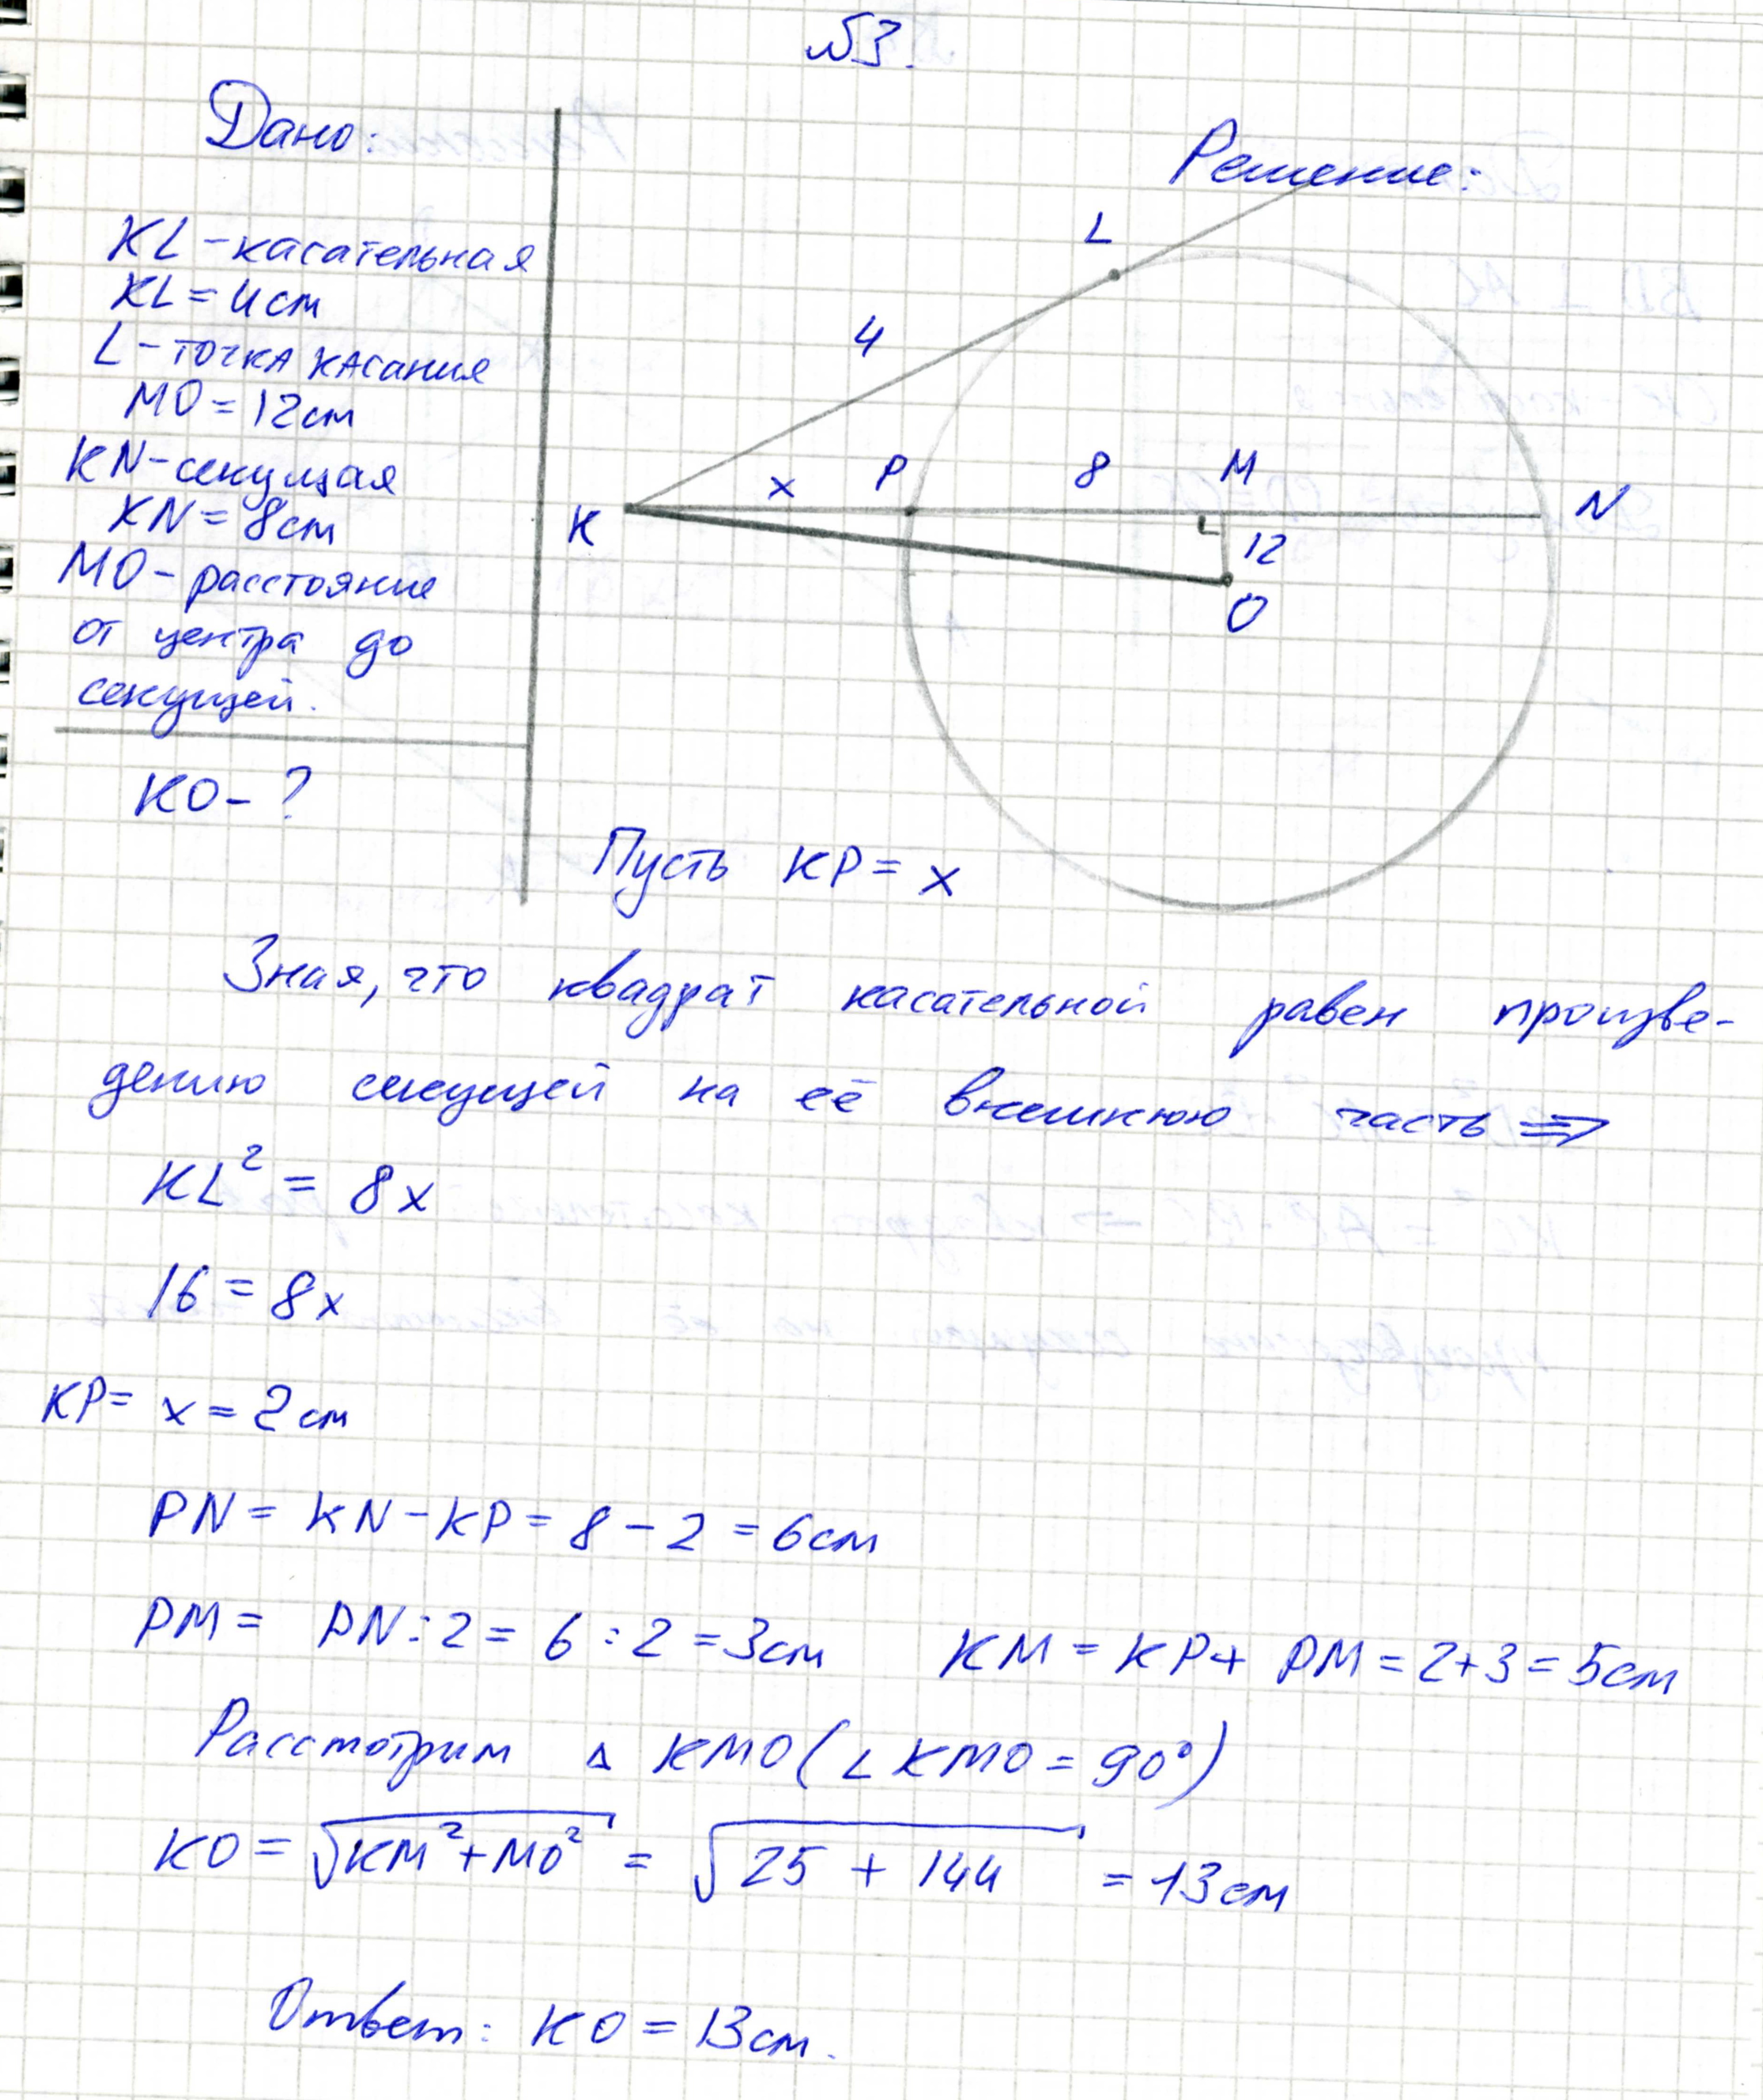 №3.
Дано:
KL - касательная
KL = 4 см
L - точка касания
MO = 12 см
KN - секущая
KN = 8 см
MO - расстояние
от центра до
секущей.
KO - ?
Решение:
L
4
K
x
P
8
M
N
12
O
Пусть KP = x
Зная, что квадрат касательной равен произве-
дению секущей на её внешнюю часть ⇒
KL² = 8x
16 = 8x
KP = x = 2 см
PN = KN - KP = 8 - 2 = 6 см
PM = PN : 2 = 6 : 2 = 3 см KM = KP + PM = 2 + 3 = 5 см
Рассмотрим △ KMO (∠KMO = 90°)
KO = √(KM² + MO²) = √(25 + 144) = 13 см
Ответ: KO = 13 см.